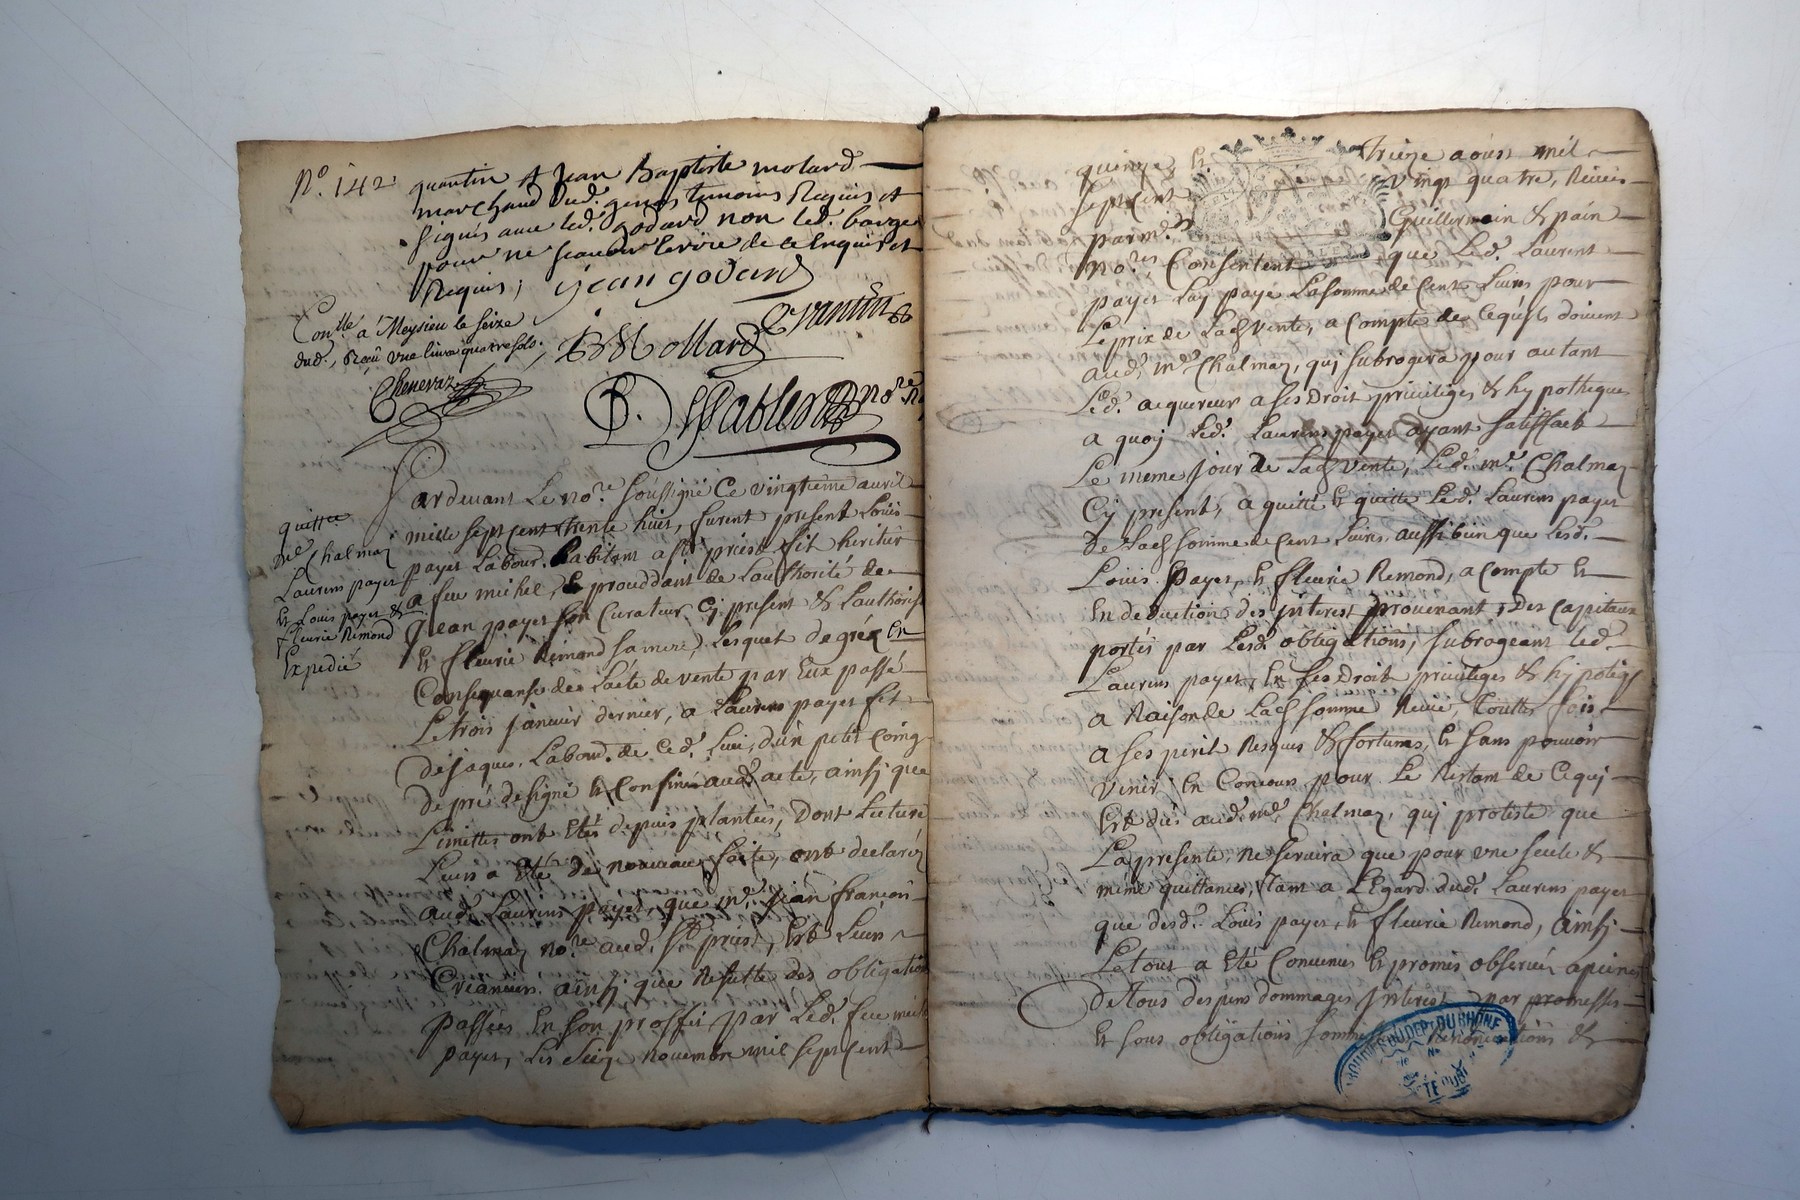 N.o 142
quantin et Jean Baptiste molard
marchand dud. genas temoins Requis et
signés avec led. godard non led. barge
pour ne scavoir Ecrire de ce Enquis et
Requis;
jean godard
quantin
JB Mollard
Conllé a Meysieu le seize
dud., Reçû une livre quatre sols.
Chenevaz
D. Sablon no.re R
Pardevant Le no.re soussigné Ce vingtieme avril
mille sept cent trente huit, furent present Louis
payet Labour. habitant a st priest fit heritier
a feu michel, & procedant de Lauthorité de
Jean payet son Curateur Cj present & Lauthorist
Et fleurie Remond sa mere, Lesquel de gréz En
Consequanse de Lacte de vente par Eux passé
Le trois janvier dernier, a Laurens payet fit
de jaques, Labour. de Ced. Lieu, d'un petit Coing
de pré designé & Confiné aud. acte, ainsj que
Limittes ont Etés depuis plantées, Dont Lecture
Leurs a Eté de nouveau faite, ont declaréz
aud. Laurens payet, que m.e jean françois
Chalmaz no.re aud. st priest, Est Leurs
Creanciers ainsj que Resulte des obligation
passées En son proffit par Led. feu michel
payet, Les Seize novembre mil sept Cent
quittce
de Chalmaz
Laurens payet
Et Louis payet &
fleurie Remond
Expedié
quinze Et treize aoust mil
sept Cent vingt quatre, Receus
par m.es Guillermain & pain
no.res Consentent que Led. Laurent
payet Luy paye La somme de Cent Livres pour
Le prix de Lad. vente, a Compte de Cequ'ils doivent
aud. m.e Chalmaz, quj subrogera pour autant
Led. acquereur a ses Droit privileges & hypotheque
a quoj Led. Laurens payet ayant satisfaict
Le meme jour de Lad. vente, Led. m.e Chalmaz
Cj present, a quitté Et quitte Led. Laurens payet
De Lad. somme de Cent Livres aussi bien que Lesd.
Louis payet, & fleurie Remond, a Compte Et
En deduction des jnterest provenant, Des Capitaux
portés par Lesd. obligations, subrogeant Led.
Laurens payet, En ses Droit privileges & hypoteq
a Raison de Lad. somme Receüe, Touttes fois
a ses peril Resques & fortunes, & sans pouvoir
Venir En Concours pour Le Restant de Cequj
Est dü aud. m.e Chalmaz, quj proteste que
La presente, ne servira que pour une seule &
meme quittance, tant a L'Egard dud. Laurens payet
que desd. Louis payet, & fleurie Remond, ainsj
Letout a Eté Convenus Et promis observer a peine
De tous despens dommages jnterest par promesses
Et sous obligations Renonciations &
DU DEPT DU RHONE